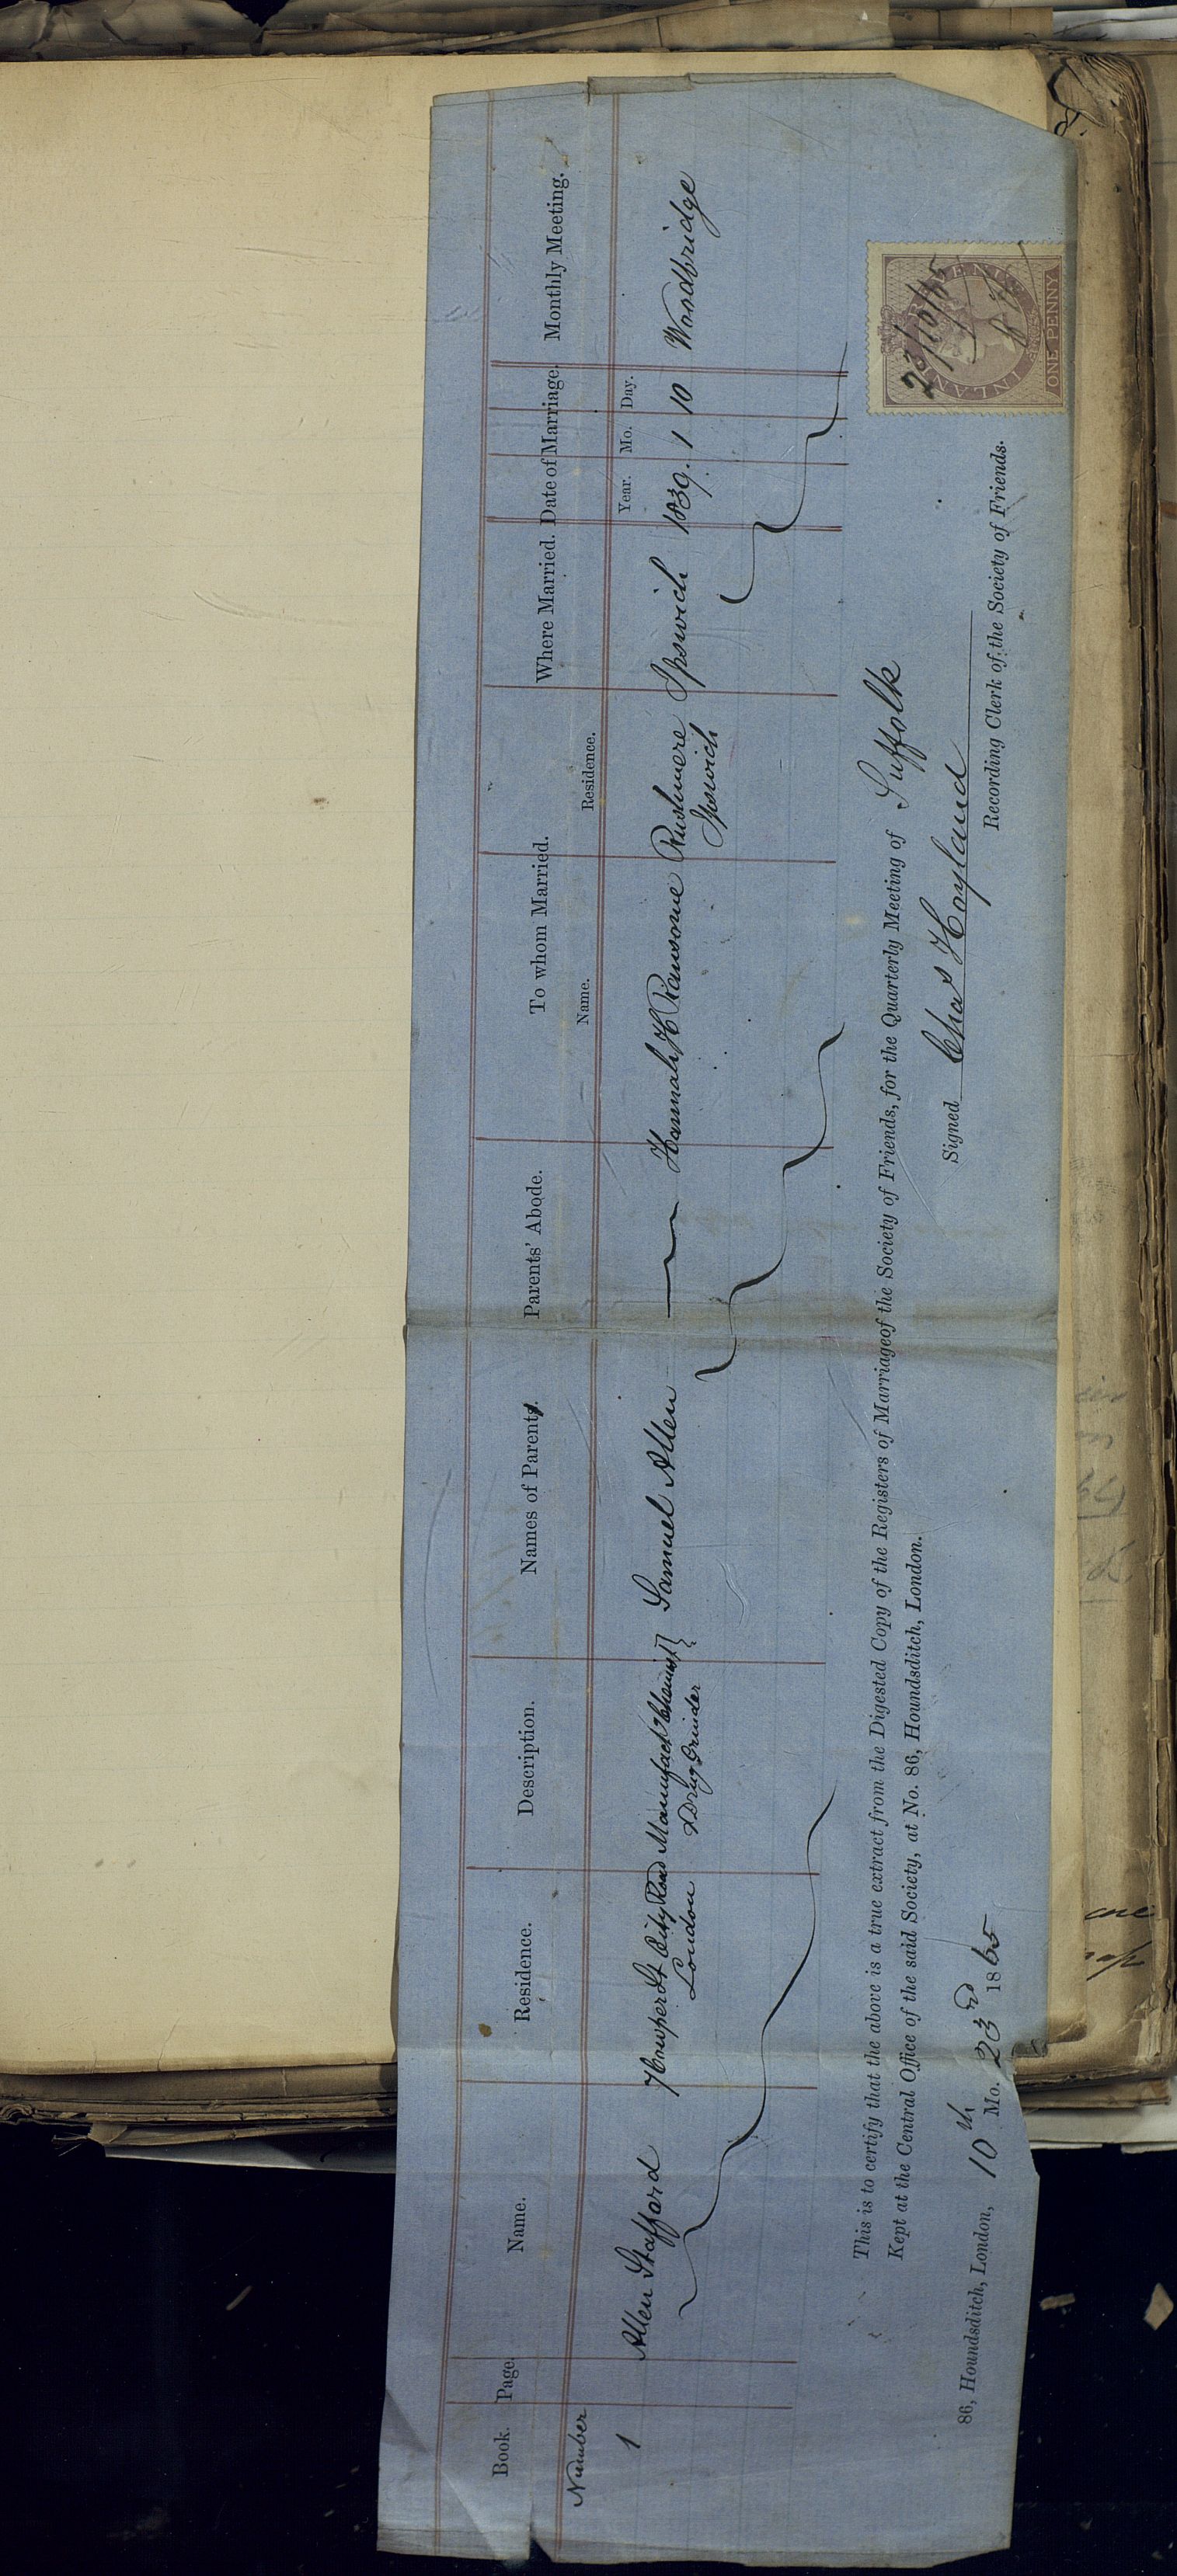 Book. Page. Name. Residence. Description. Names of Parents. Parents' Abode. To whom Married. Where Married. Date of Marriage. Monthly Meeting.
Number Name. Residence. Year. Mo. Day.
1 Allen Stafford Cowper St City Road Manufact Chemist Samuel Allen — Hannah H Ransome Rushmere Ipswich 1839. 1 10 Woodbridge
London & Drug Grinder Ipswich
This is to certify that the above is a true extract from the Digested Copy of the Registers of Marriage of the Society of Friends, for the Quarterly Meeting of Suffolk
Kept at the Central Office of the said Society, at No. 86, Houndsditch, London.
Signed Chas Hoyland
86, Houndsditch, London, 10th Mo. 23rd 1865 Recording Clerk of the Society of Friends.
INLAND REVENUE
ONE PENNY
23/10/65